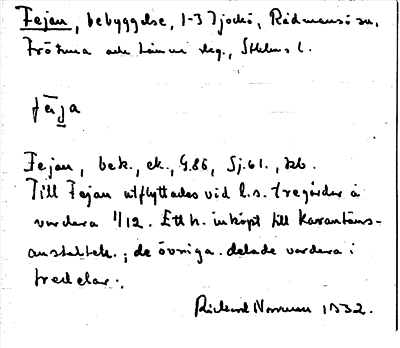 Fejan, bebyggelse, 1-3 Tjockö, Rådmansö sn,
Frötuna och Länna skg., Sthlms l.
fēja
Fejan, bek., ek., G.86, Sj.61., hb.
Till Fejan utflyttades vid l.s. tregårdar å
vardera 1/12. Ett h. inköpt till Karantäns-
anstalten; de övriga delade vardera i
tredelar.
Rickard Norman 1932.